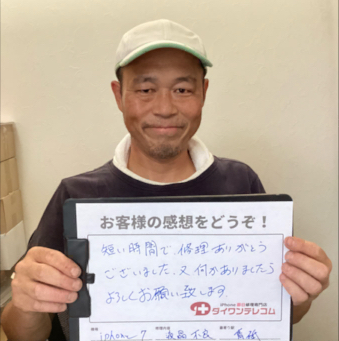 お客様の感想をどうぞ！
短い時間で、修理ありがとう
ございました、又何かありましたら
よろしくお願い致します
iPhone 即日修理専門店
タイワンテレコム
iphone 7 液晶不良